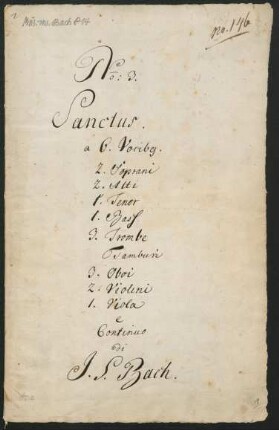 Mus. ms. Bach St 114
no. 116
No: 3.
Sanctus.
a 6. Vocibg.
2. Soprani
2. Alti
1. Tenor
1. Bass
3. Trombe
Tamburi
3. Oboi
2. Violini
1. Viola
e
Continuo
di
J. S. Bach.